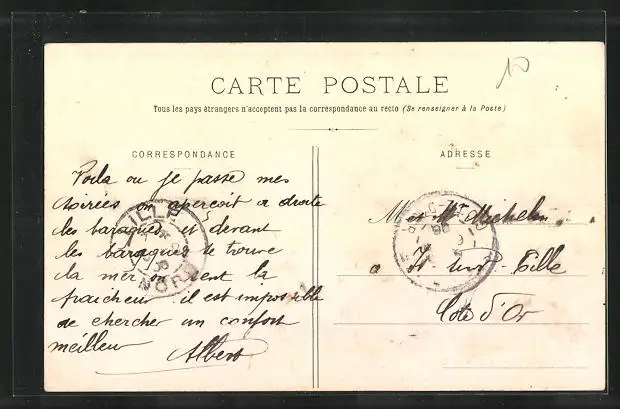 10
CARTE POSTALE
Tous les pays étrangers n'acceptent pas la correspondance au recto (Se renseigner à la Poste)
CORRESPONDANCE
ADRESSE
Voila ou je passe mes
soirées on aperçoit a droite
les baraques et devant
les baraques se trouve
la mer on sent la
fraicheur il est impossible
de chercher un confort
meilleur
Albert
M et Mme Michelin
a Is-sur-Tille
Côte d'Or
LILLE
NORD